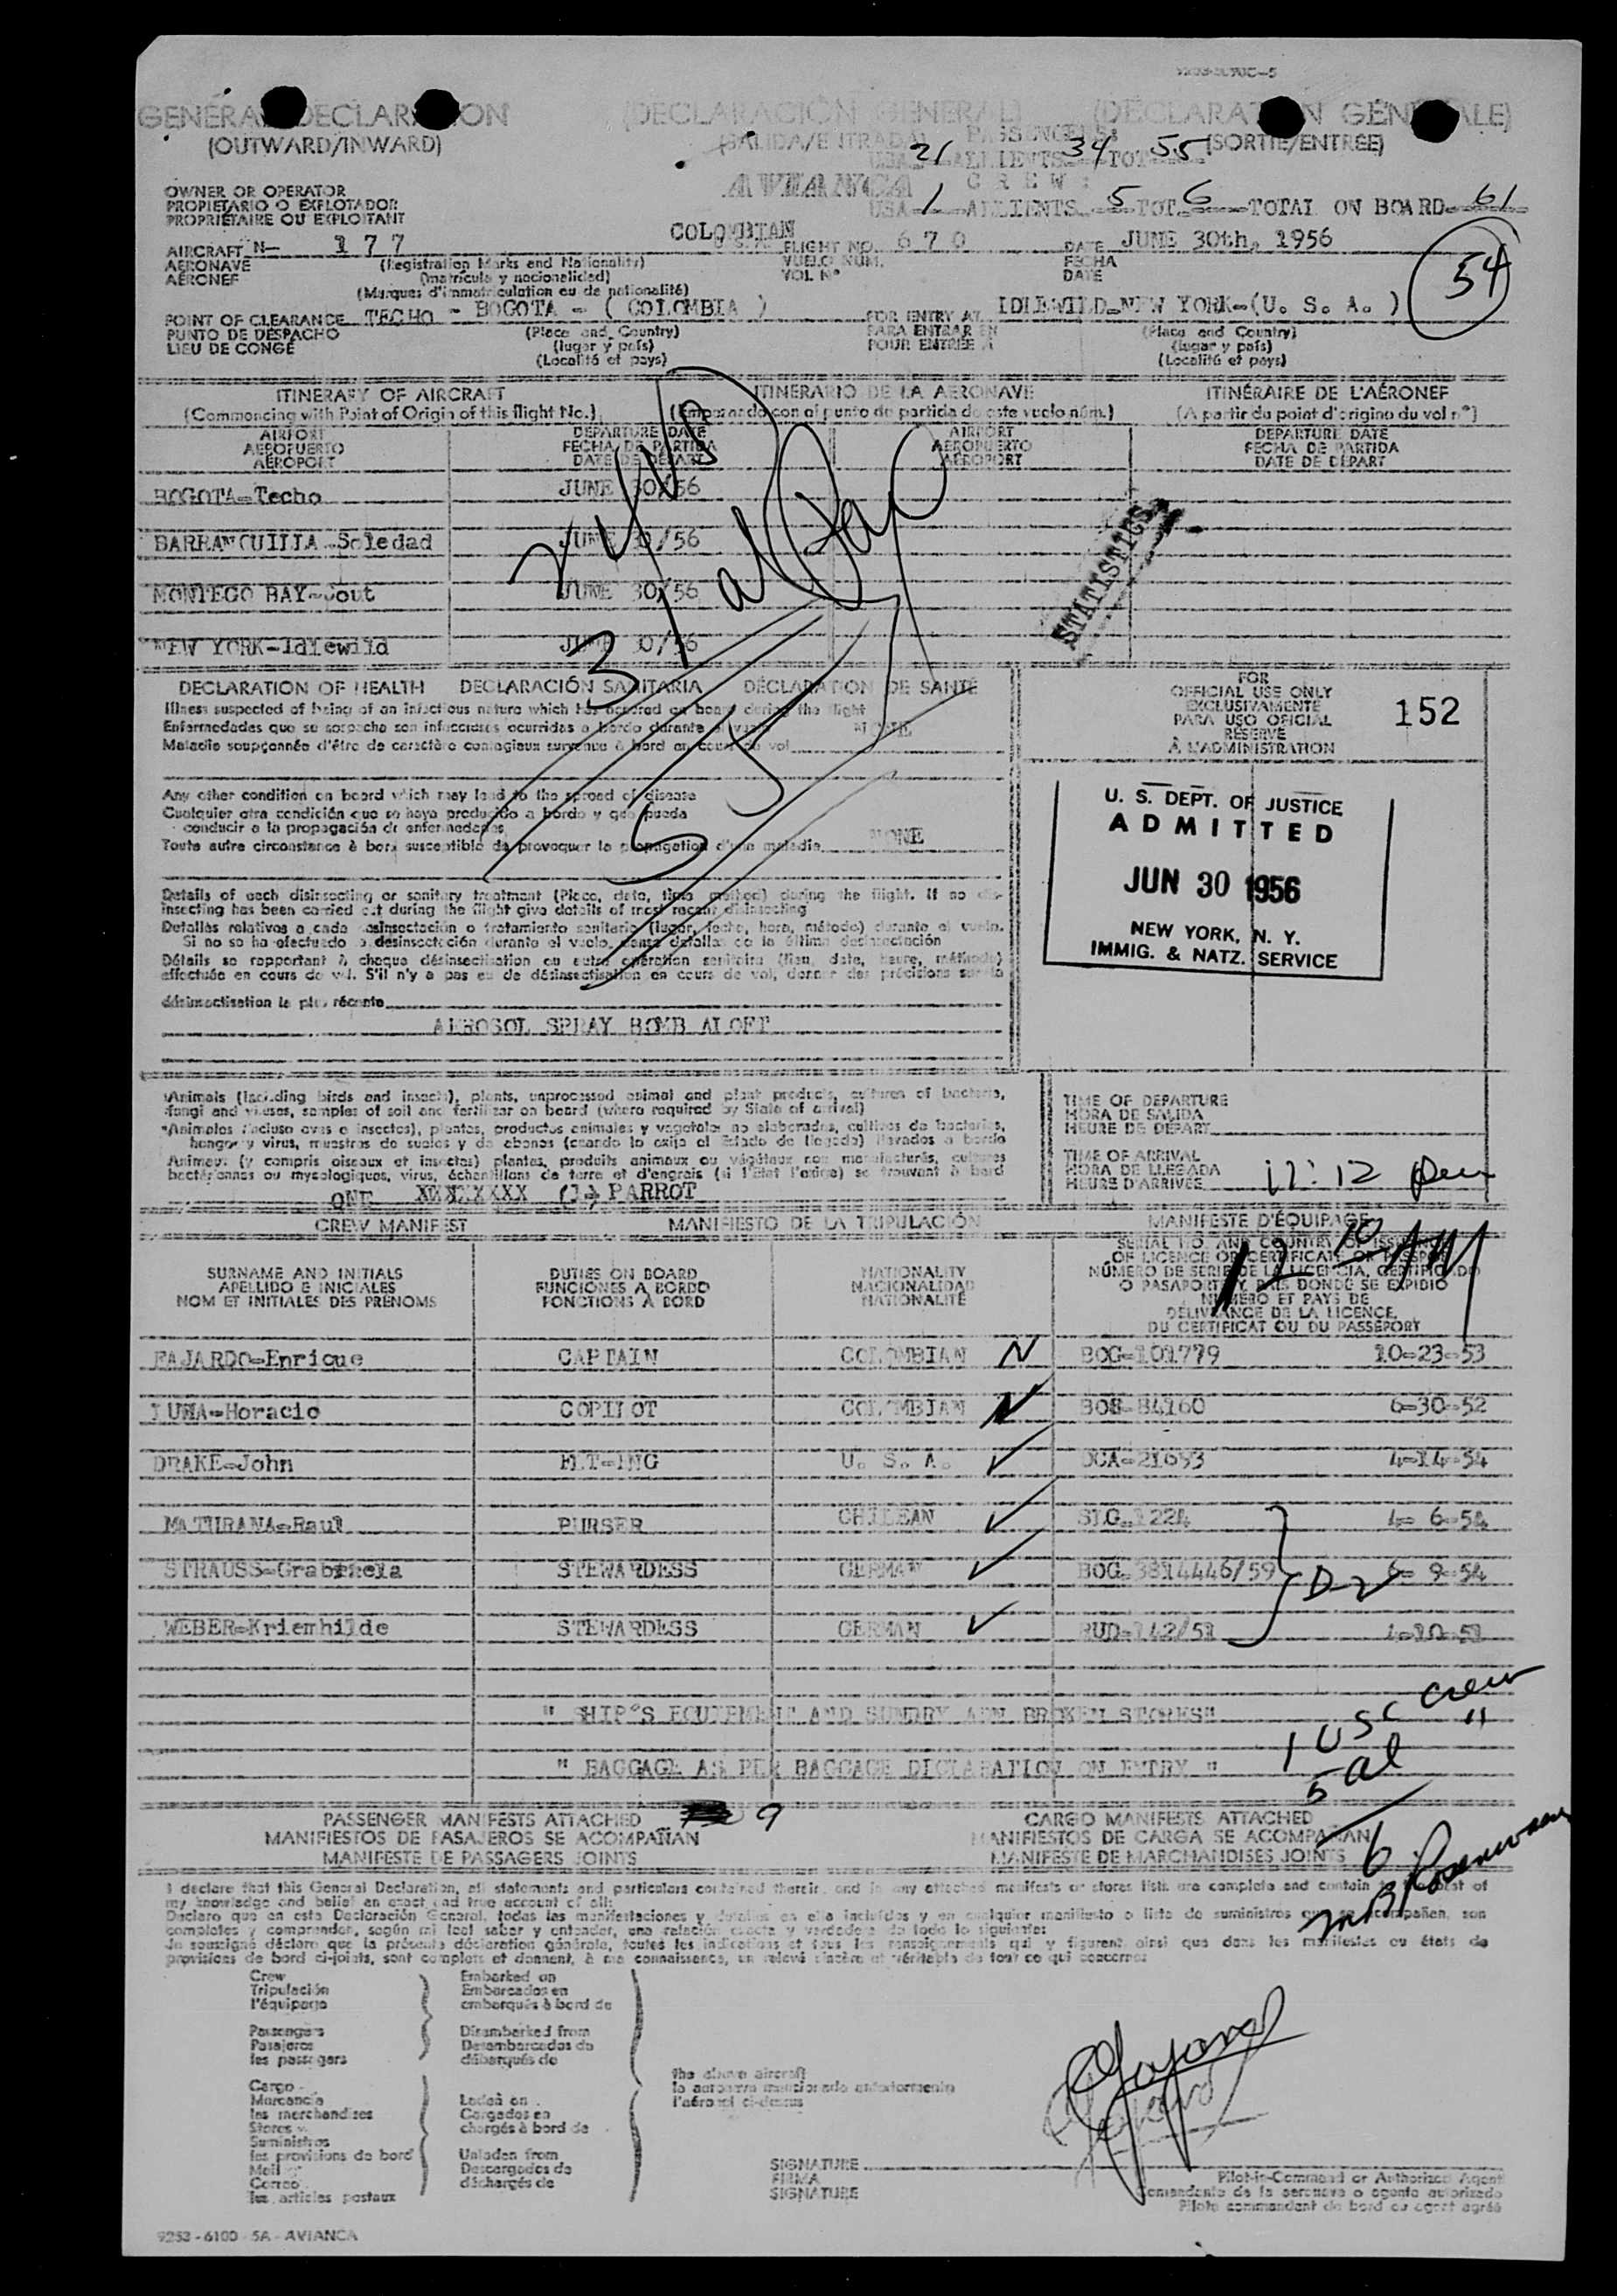 GENERAL DECLARATION (DECLARACIÓN GENERAL) (DÉCLARATION GÉNÉRALE)
(OUTWARD/INWARD) (SALIDA/ENTRADA) (SORTIE/ENTRÉE)
PASSENGERS:
USA 21 ALLIENTS 34 TOT 55
AVIANCA CREW:
USA 1 ALLIENTS 5 TOT 6 TOTAL ON BOARD 61
OWNER OR OPERATOR
PROPIETARIO O EXPLOTADOR
PROPRIÉTAIRE OU EXPLOITANT
COLOMBIAN
AIRCRAFT N- 177 FLIGHT NO. 670 DATE JUNE 30th, 1956
AERONAVE (Registration Marks and Nationality) VUELO NUM. FECHA
AÉRONEF (matrícula y nacionalidad) VOL Nº DATE
(Marques d'immatriculation ou de nationalité)
54
POINT OF CLEARANCE TECHO - BOGOTA - ( COLOMBIA ) FOR ENTRY AT IDLEWILD-NEW YORK-(U. S. A. )
PUNTO DE DESPACHO (Place and Country) PARA ENTRAR EN (Place and Country)
LIEU DE CONGÉ (lugar y país) POUR ENTRÉE À (lugar y país)
(Localité et pays) (Localité et pays)
ITINERARY OF AIRCRAFT ITINERARIO DE LA AERONAVE ITINÉRAIRE DE L'AÉRONEF
(Commencing with Point of Origin of this flight No.) (Empezando con el punto de partida de este vuelo núm.) (A partir du point d'origine du vol nº)
AIRPORT DEPARTURE DATE AIRPORT DEPARTURE DATE
AEROPUERTO FECHA DE PARTIDA AEROPUERTO FECHA DE PARTIDA
AÉROPORT DATE DE DÉPART AÉROPORT DATE DE DÉPART
BOGOTA-Techo JUNE 30/56
BARRANQUILLA-Soledad JUNE 30/56
MONTEGO BAY- JUNE 30/56
NEW YORK-Idlewild JUNE 30/56
STATISTICS
55
DECLARATION OF HEALTH DECLARACIÓN SANITARIA DÉCLARATION DE SANTÉ
Illness suspected of being of an infectious nature which has occured on board during the flight
Enfermedades que se sospecha son infecciosas ocurridas a bordo durante el vuelo NONE
Maladie soupçonnée d'être de caractère contagieux survenue à bord en cours de vol
Any other condition on board which may lead to the spread of disease
Cualquier otra condición que se haya producido a bordo y que pueda
conducir a la propagación de enfermedades
Toute autre circonstance à bord susceptible de provoquer la propagation d'une maladie NONE
Details of each disinsecting or sanitary treatment (Place, date, time method) during the flight. If no dis-
insecting has been carried out during the flight give details of most recent disinsecting
Detalles relativos a cada desinsectación o tratamiento sanitario (lugar, fecha, hora, método) durante el vuelo.
Si no se ha efectuado la desinsectación durante el vuelo, dense detalles de la última desinsectación
Détails se rapportant à chaque désinsectisation ou autre opération sanitaire (lieu, date, heure, méthode)
effectuée en cours de vol. S'il n'y a pas eu de désinsectisation en cours de vol, donner des précisions sur la
désinsectisation la plus récente
AEROSOL SPRAY BOMB ALOFT
FOR
OFFICIAL USE ONLY
EXCLUSIVAMENTE
PARA USO OFICIAL
RÉSERVÉ
À L'ADMINISTRATION
152
U. S. DEPT. OF JUSTICE
ADMITTED
JUN 30 1956
NEW YORK, N. Y.
IMMIG. & NATZ. SERVICE
Animals (including birds and insects), plants, unprocessed animal and plant products, cultures of bacteria,
fungi and viruses, samples of soil and fertilizer on board (where required by State of arrival)
Animales (incluso aves e insectos), plantas, productos animales y vegetales no elaborados, cultivos de bacterias,
hongos y virus, muestras de suelos y de abonos (cuando lo exija el Estado de llegada) llevados a bordo
Animaux (y compris oiseaux et insectes) plantes, produits animaux ou végétaux non manufacturés, cultures
bactériennes ou mycologiques, virus, échantillons de terre et d'engrais (si l'État l'exige) se trouvant à bord
ONE (1) PARROT
TIME OF DEPARTURE
HORA DE SALIDA
HEURE DE DÉPART
TIME OF ARRIVAL
HORA DE LLEGADA
HEURE D'ARRIVÉE 11:12 pm
12 10 AM
CREW MANIFEST MANIFIESTO DE LA TRIPULACIÓN MANIFESTE D'ÉQUIPAGE
SURNAME AND INITIALS DUTIES ON BOARD NATIONALITY
APELLIDO E INICIALES FUNCIONES A BORDO NACIONALIDAD
NOM ET INITIALES DES PRÉNOMS FONCTIONS À BORD NATIONALITÉ
SERIAL NO. AND COUNTRY OF ISSUANCE
OF LICENCE OR CERTIFICATE OR PASSPORT
NÚMERO DE SERIE DE LA LICENCIA, CERTIFICADO
O PASAPORTE Y PAIS DONDE SE EXPIDIO
NUMÉRO ET PAYS DE
DÉLIVRANCE DE LA LICENCE,
DU CERTIFICAT OU DU PASSEPORT
FAJARDO-Enrique CAPTAIN COLOMBIAN N BOG-101779 10-23-53
LUNA-Horacio COPILOT COLOMBIAN N BOG-84160 6-30-52
DRAKE-John U. S. A. OCA-21653 4-14-54
MATURANA-Raul PURSER CHILEAN 1224 6-54
STRAUSS-Grabriela STEWARDESS GERMAN BOG-3814446/59 D-2 9-54
WEBER-Kriemhilde STEWARDESS GERMAN
" SHIP'S EQUIPEMENT AND SUNDRY AND BROKEN STORES"
" BAGGAGE AS PER BAGGAGE DECLARATION ON ENTRY "
1 USC crew
5 al "
6
PASSENGER MANIFESTS ATTACHED 9 CARGO MANIFESTS ATTACHED
MANIFIESTOS DE PASAJEROS SE ACOMPAÑAN MANIFIESTOS DE CARGA SE ACOMPAÑAN
MANIFESTE DE PASSAGERS JOINTS MANIFESTE DE MARCHANDISES JOINTS
I declare that this General Declaration, all statements and particulars contained therein, and in any attached manifests or stores lists are complete and contain to the best of
my knowledge and belief an exact and true account of all:
Declaro que en esta Declaración General, todas las manifestaciones y detalles en ella incluídos y en cualquier manifiesto o lista de suministros que se acompañen, son
completos y comprenden, según mi leal saber y entender, una relación exacta y verdadera de todo lo siguiente:
Je soussigné déclare que la présente déclaration générale, toutes les indications et tous les renseignements qui y figurent ainsi que dans les manifestes ou états de
provisions de bord ci-joints, sont complets et donnent, à ma connaissance, un relevé sincère et véritable de tout ce qui concerne:
Crew Embarked on
Tripulación Embarcados en
l'équipage embarqués à bord de
Passengers Disembarked from
Pasajeros Desembarcados de
les passagers débarqués de
the above aircraft
la aeronave mencionada anteriormente
l'aéronef ci-dessus
Cargo
Mercancía Laded on
les merchandises Cargados en
Stores chargés à bord de
Suministros
les provisions de bord Unladen from
Mail Descargados de
Correo déchargés de
les articles postaux
SIGNATURE
FIRMA
SIGNATURE
Pilot-in-Command or Authorized Agent
Comandante de la aeronave o agente autorizado
Pilote commandant de bord ou agent agréé
9253 - 6100 - 5A - AVIANCA